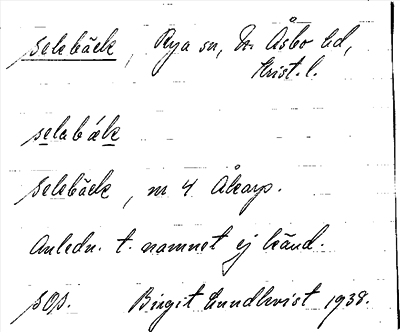 Selebäck, Rya sn, N. Åsbo hd,
Krist. l.
selabäk
Selebäck, nr 4 Åkarp.
Anledn. t. namnet ej känd.
sop. Birgit Lundkvist 1938.